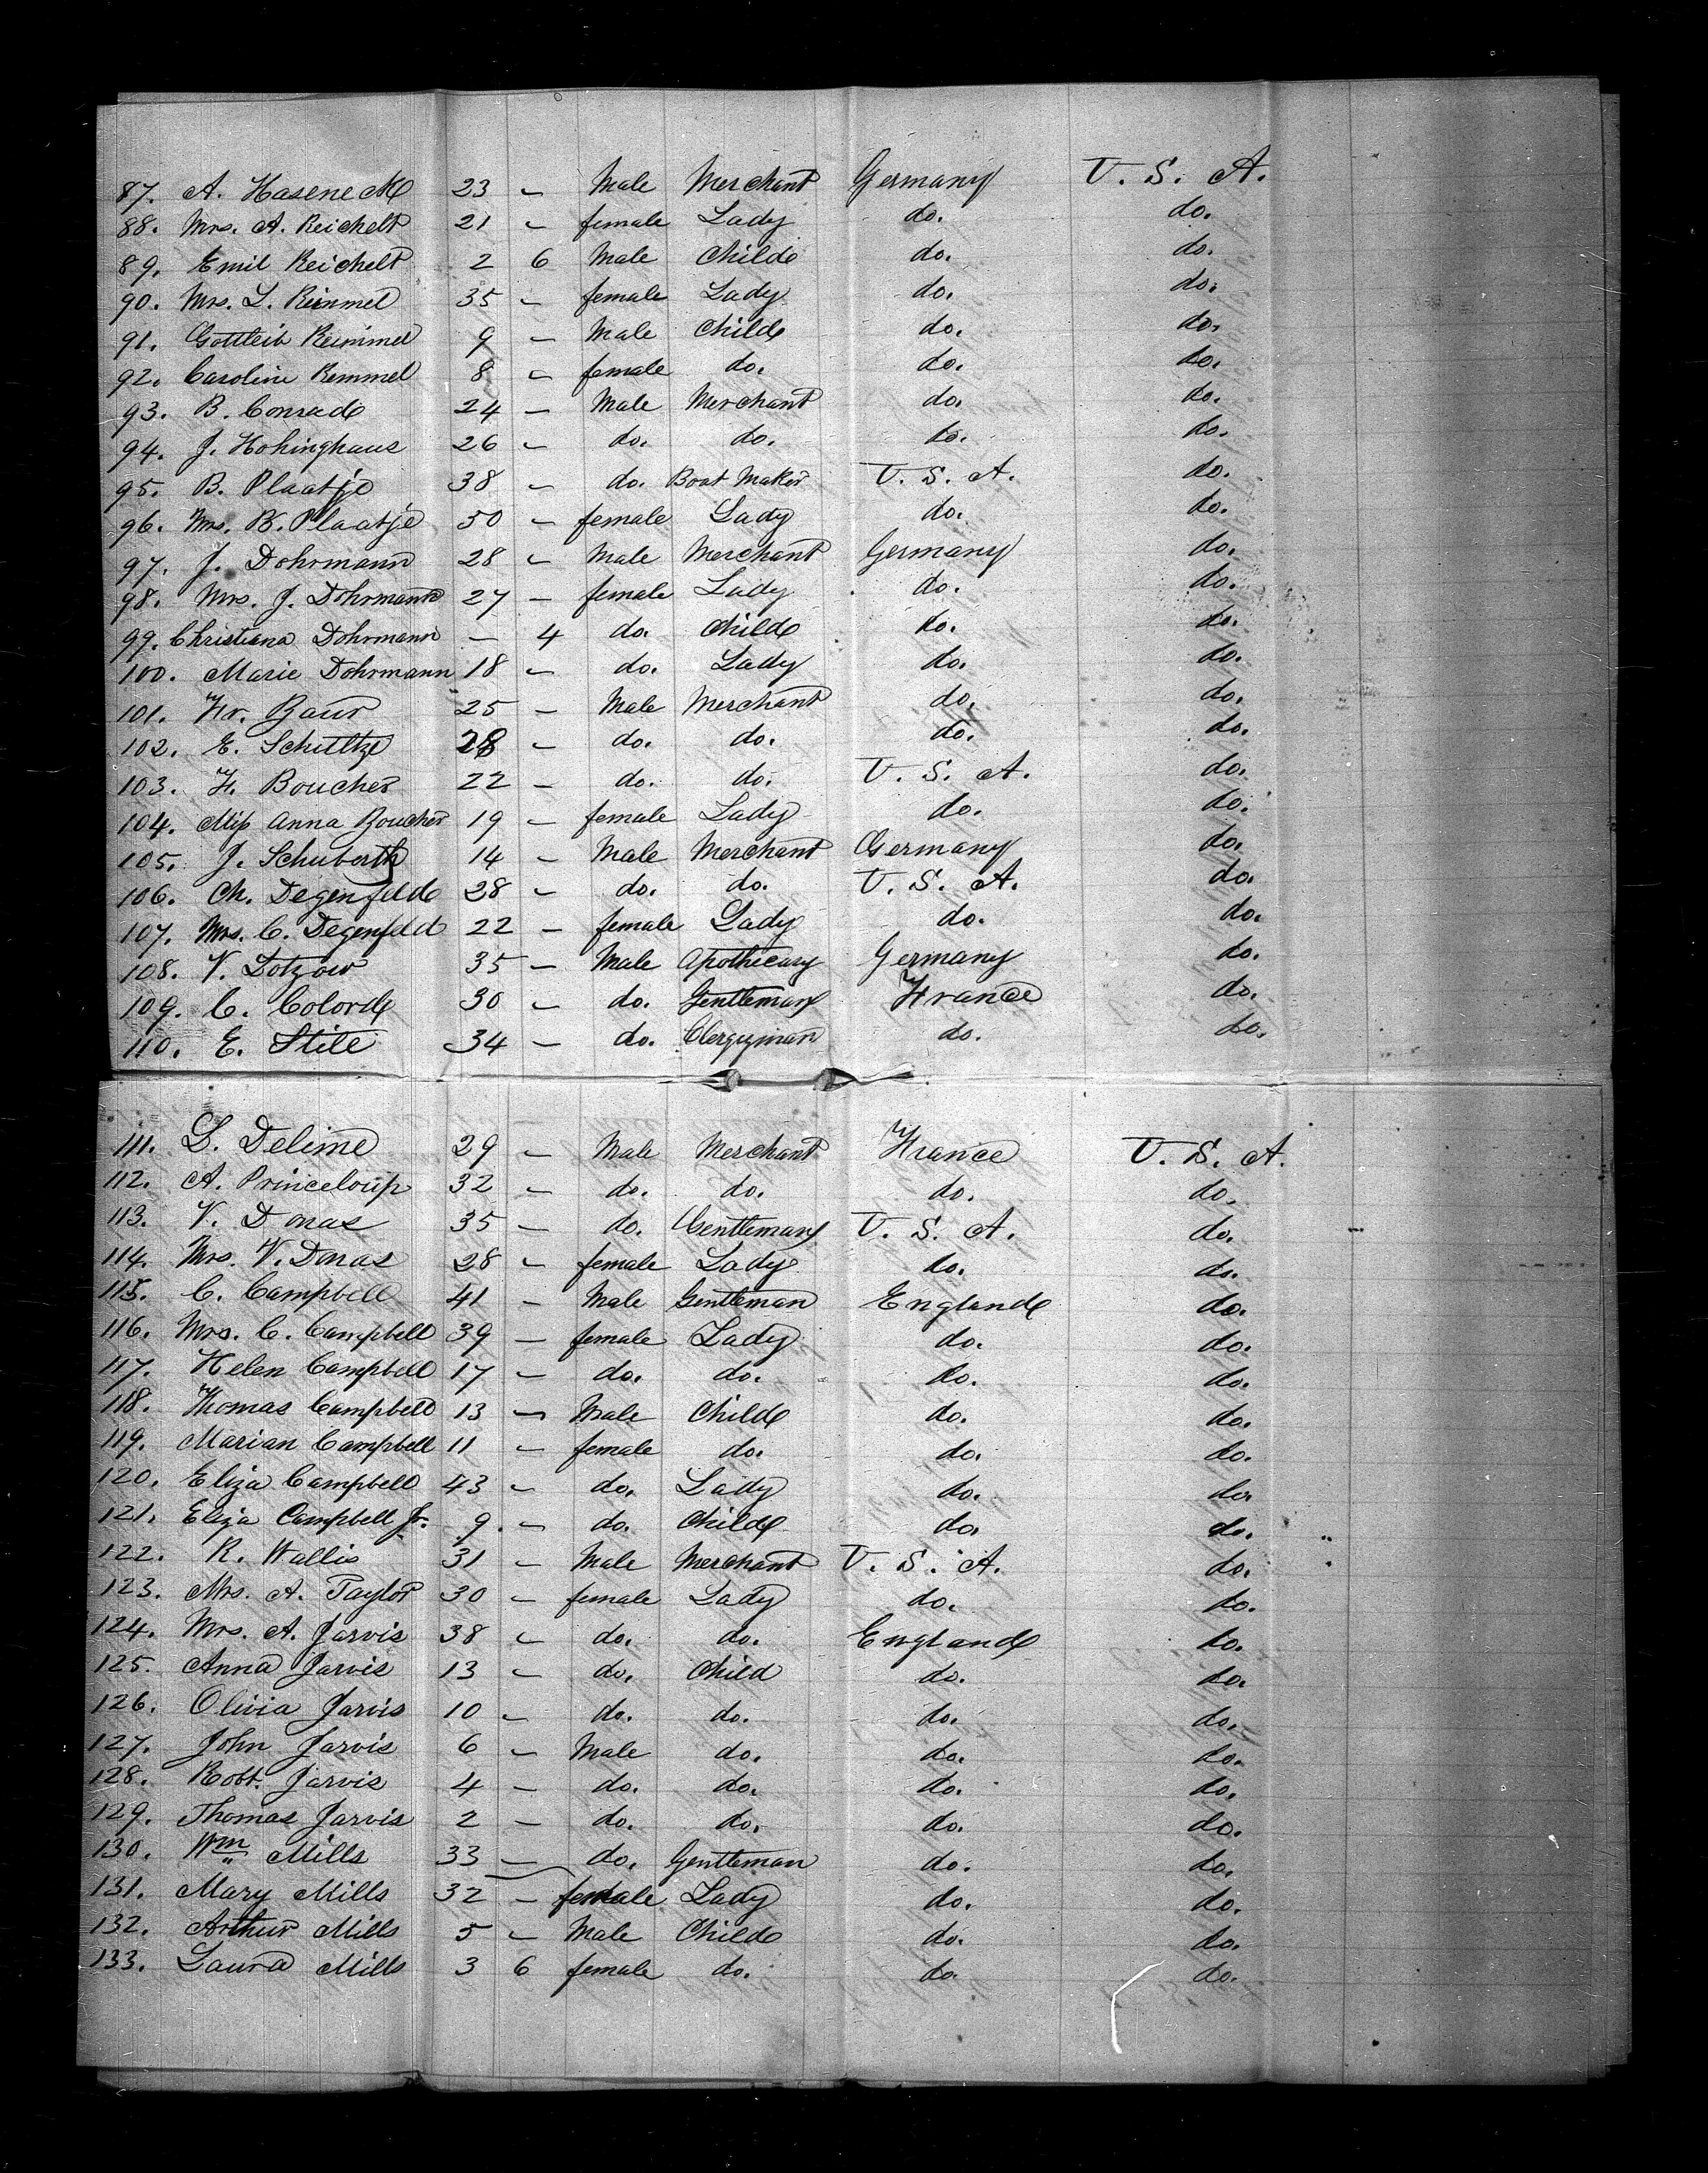 87. A. Haseneckl 23 - Male Merchant Germany U. S. A.
88. Mrs. A. Reichelt 21 - female Lady do. do.
89. Emil Reichelt 2 6 Male Child do. do.
90. Mrs. L. Rimmel 35 - female Lady do. do.
91. Gottleib Rimmel 9 - Male Child do. do.
92. Caroline Remmel 8 - female do. do. do.
93. B. Conrad 24 - Male Merchant do. do.
94. J. Hohinghaus 26 - do. do. do. do.
95. B. Plaatje 38 - do. Boat Maker U. S. A. do.
96. Mrs. B. Plaatje 30 - female Lady do. do.
97. J. Dohrmann 28 - Male Merchant Germany do.
98. Mrs. J. Dohrmann 27 - female Lady do. do.
99. Christiana Dohrmann - 4 do. Child do. do.
100. Marie Dohrmann 18 - do. Lady do. do.
101. Fr. Baur 25 - Male Merchant do. do.
102. E. Schultze 28 - do. do. do. do.
103. F. Boucher 22 - do. do. U. S. A. do.
104. Miss Anna Boucher 19 - female Lady do. do.
105. J. Schuberth 14 - Male Merchant Germany do.
106. Ch. Degenfeld 28 - do. do. U. S. A. do.
107. Mrs. C. Degenfeld 22 - female Lady do. do.
108. V. Dotzow 35 - Male Apothecary Germany do.
109. C. Colord 30 - do. Gentleman France do.
110. E. Stile 34 - do. Clergyman do. do.
111. D. Delime 29 - Male Merchant France U. S. A.
112. A. Princeloup 32 - do. do. do. do.
113. V. Donas 35 - do. Gentleman U. S. A. do.
114. Mrs. V. Donas 28 - female Lady do. do.
115. C. Campbell 41 - Male Gentleman England do.
116. Mrs. C. Campbell 39 - female Lady do. do.
117. Helen Campbell 17 - do. do. do. do.
118. Thomas Campbell 13 - Male Child do. do.
119. Marian Campbell 11 - female do. do. do.
120. Eliza Campbell 43 - do. Lady do. do.
121. Eliza Campbell Jr. 9 - do. Child do. do.
122. R. Wallis 31 - Male Merchant U. S. A. do.
123. Mrs. A. Taylor 30 - female Lady do. do.
124. Mrs. A. Jarvis 38 - do. do. England do.
125. Anna Jarvis 13 - do. Child do. do.
126. Olivia Jarvis 10 - do. do. do. do.
127. John Jarvis 6 - Male do. do. do.
128. Robt. Jarvis 4 - do. do. do. do.
129. Thomas Jarvis 2 - do. do. do. do.
130. Wm Mills 33 - do. Gentleman do. do.
131. Mary Mills 32 - female Lady do. do.
132. Arthur Mills 5 - Male Child do. do.
133. Laura Mills 3 6 female do. do. do.